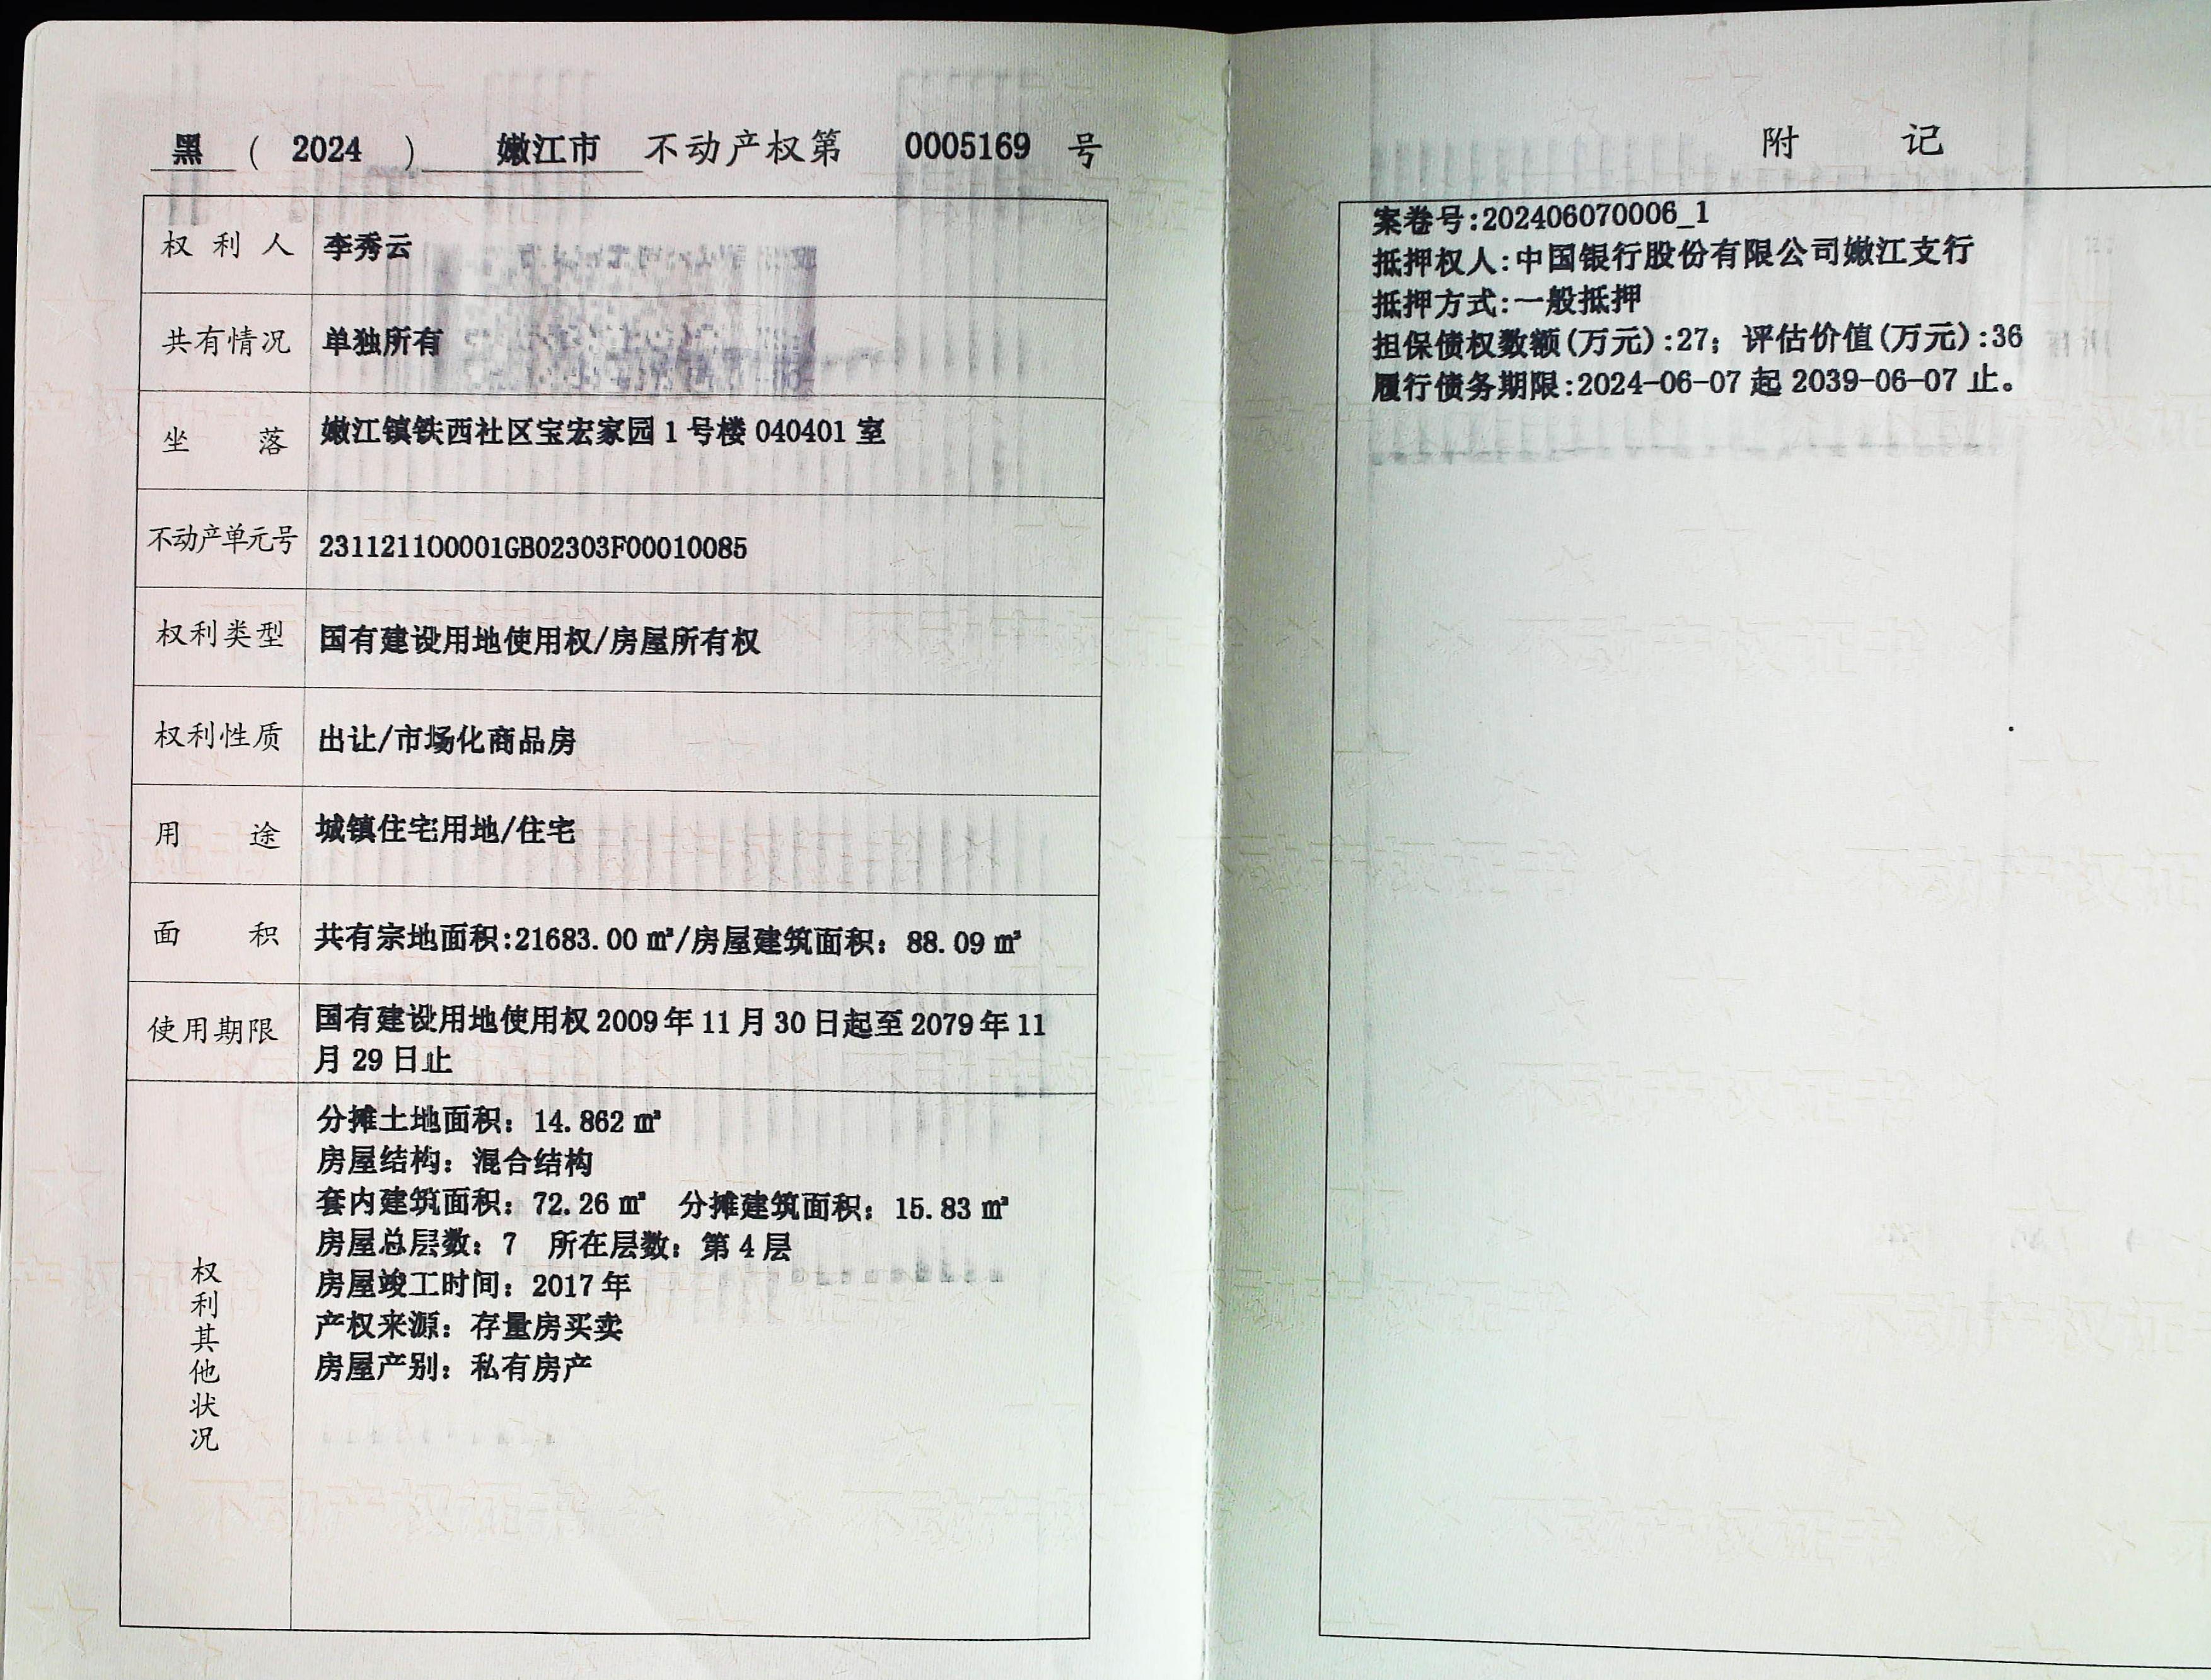 黑 ( 2024 ) 嫩江市 不动产权第 0005169 号
权利人 李秀云
共有情况 单独所有
坐落 嫩江镇铁西社区宝宏家园 1 号楼 040401 室
不动产单元号 231121100001GB02303F00010085
权利类型 国有建设用地使用权/房屋所有权
权利性质 出让/市场化商品房
用途 城镇住宅用地/住宅
面积 共有宗地面积:21683.00 ㎡/房屋建筑面积：88.09 ㎡
使用期限 国有建设用地使用权 2009 年 11 月 30 日起至 2079 年 11
月 29 日止
权利其他状况
分摊土地面积：14.862 ㎡
房屋结构：混合结构
套内建筑面积：72.26 ㎡ 分摊建筑面积：15.83 ㎡
房屋总层数：7 所在层数：第 4 层
房屋竣工时间：2017 年
产权来源：存量房买卖
房屋产别：私有房产
附记
案卷号:202406070006_1
抵押权人:中国银行股份有限公司嫩江支行
抵押方式:一般抵押
担保债权数额(万元):27；评估价值(万元):36
履行债务期限:2024-06-07 起 2039-06-07 止。